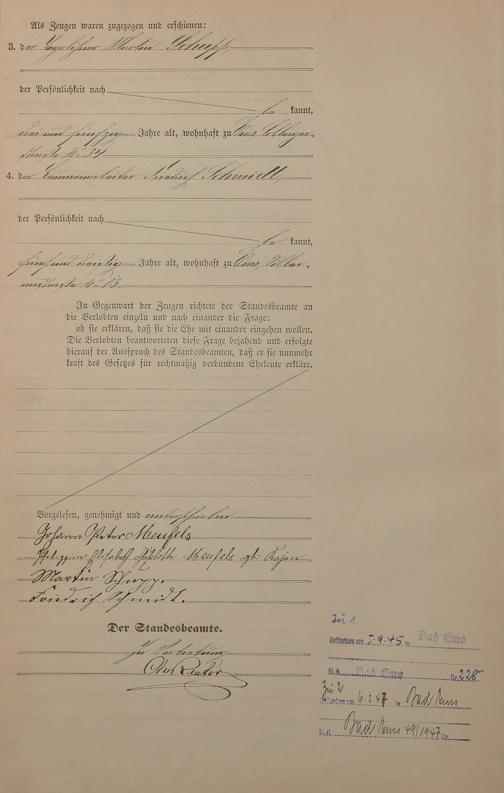 Als Zeugen waren zugezogen und erschienen:
3. der Martin Schupp
der Persönlichkeit nach
be kannt,
und fünfzig Jahre alt, wohnhaft zu Ems,
straße No 34
4. der Friedrich Schmidt,
der Persönlichkeit nach
be kannt,
fünf und zwanzig Jahre alt, wohnhaft zu Ems,
straße No 13.
In Gegenwart der Zeugen richtete der Standesbeamte an
die Verlobten einzeln und nach einander die Frage:
ob sie erklären, daß sie die Ehe mit einander eingehen wollen.
Die Verlobten beantworteten diese Frage bejahend und erfolgte
hierauf der Ausspruch des Standesbeamten, daß er sie nunmehr
kraft des Gesetzes für rechtmäßig verbundene Eheleute erkläre.
Vorgelesen, genehmigt und unterschrieben
Johann Peter Meufels
Philippine Elisabeth Meufels gb.
Martin Schupp.
Friedrich Schmidt.
Der Standesbeamte.
In Vertretung
Zu 1
Gestorben am 5.9.45 in Bad Ems
St.A. Bad Ems Nr 228
Zu 2
Gestorben am 6.3.47 in Bad Ems
St.A. Bad Ems 49/1947 Nr.